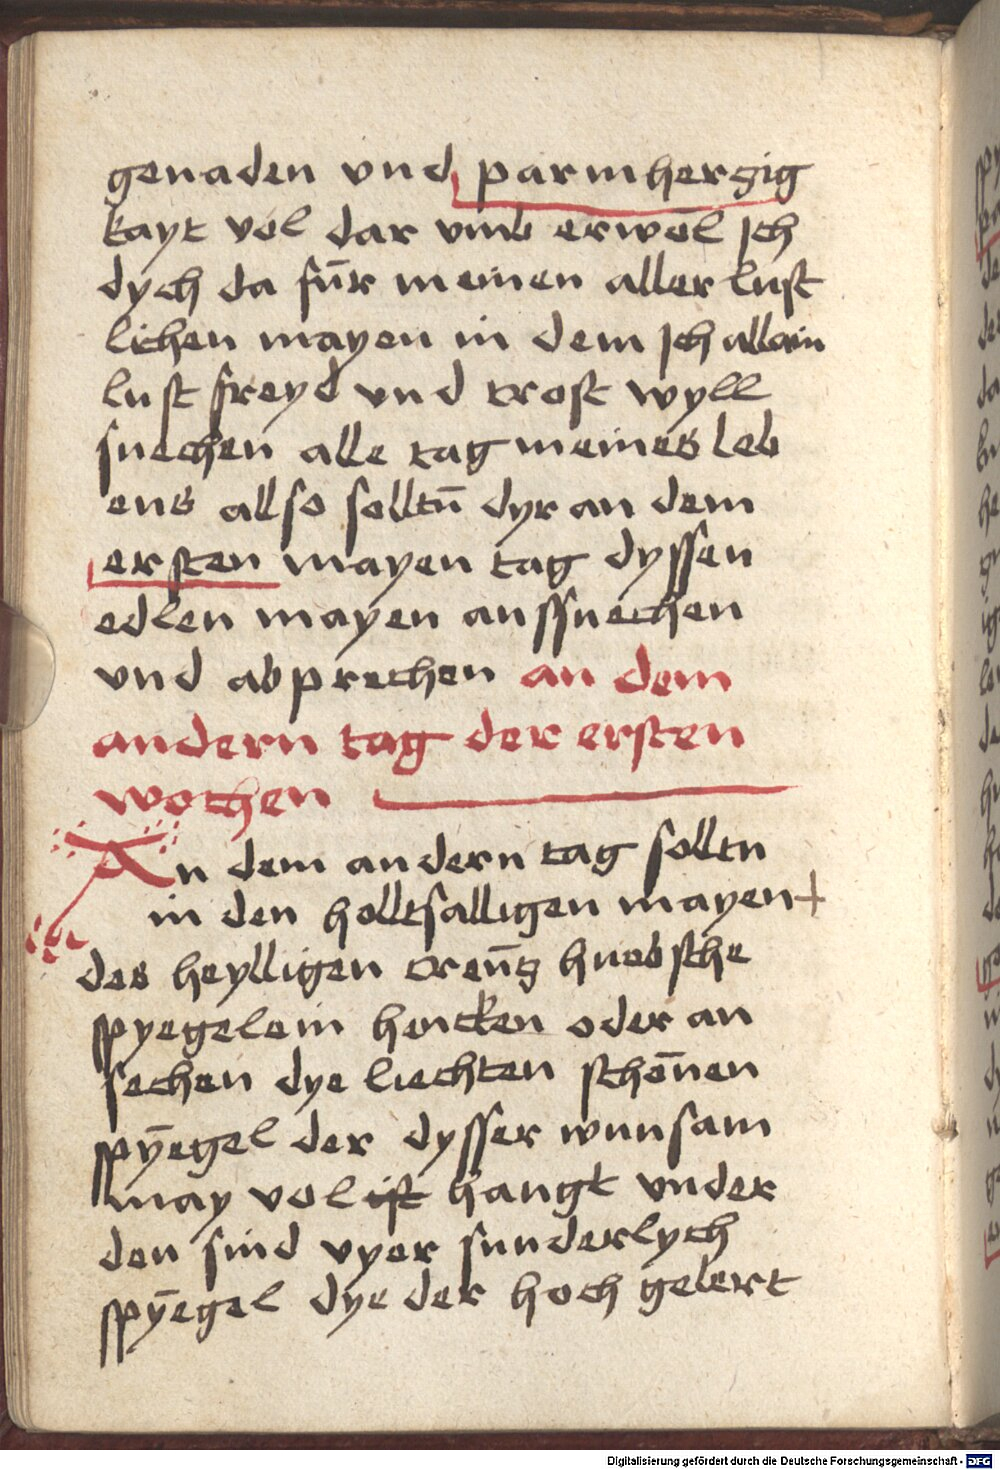 genaden vnd parmherczig
kayt vol dar vmb erwel ich
dych da fur̄ meinen aller lust
lichen mayen in dem ich allain
lust freyd vnd trost wyll
suechen alle tag meines leb
ens allso solltū dyr an dem
ersten mayen tag dyssen
edlen mayen aussuechen
vnd abprechen an dem
andern tag der ersten
wochen
An dem andern tag solltu
in den holltsalligen mayen +
des heylligen creūtz huebsche
spyegelein hencken oder an
sechen dye liechten schōnen
spȳegel der dysser wunsam
may vol ist hangt vnder
den sind vyer sunderlych
spȳegel dye der hoch gelert
Digitalisierung gefördert durch die Deutsche Forschungsgemeinschaft - DFG